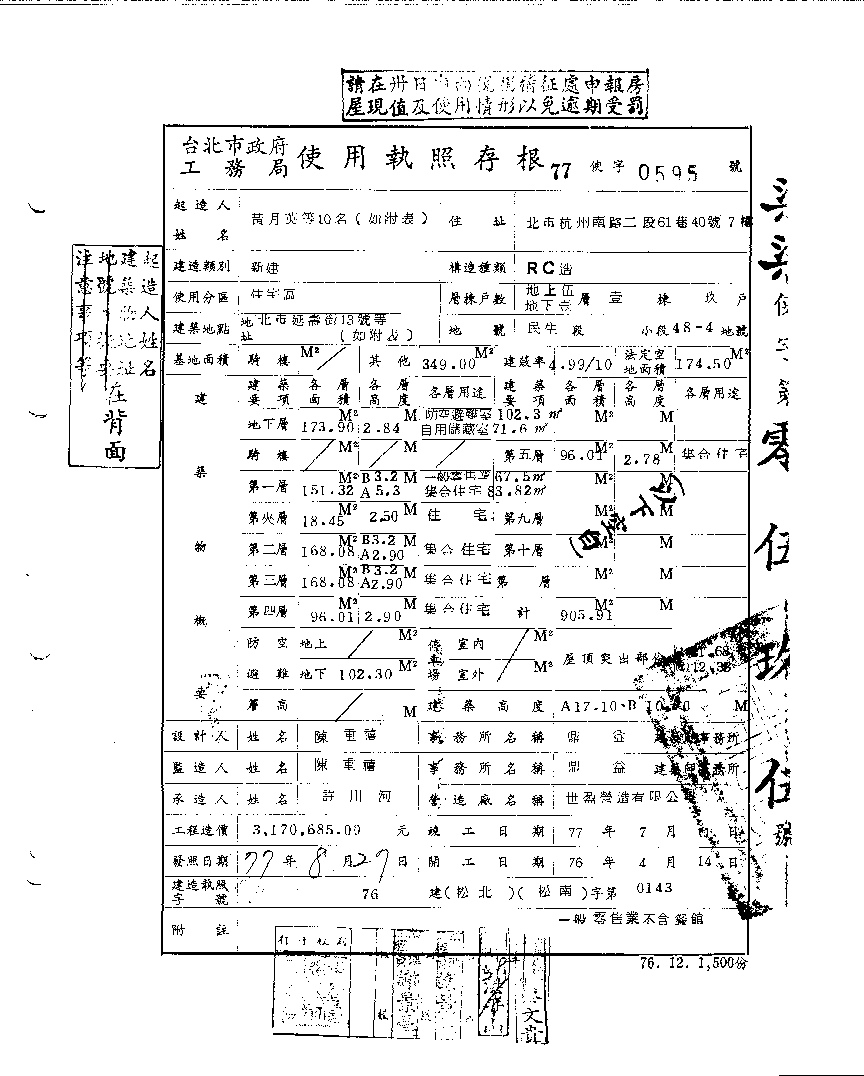 請在卅日
稽征處申報房
屋現值及使用情形以免逾期受罰
台北市政府
工務局 使用執照存根 77 使字 0595 號
起造人姓名 黃月英等10名(如附表) 住址 北市杭州南路二段61巷40號7樓
建造類別 新建 構造種類 RC造
使用分區 住宅區 層棟戶數 地上伍 地下壹 層 壹 棟 玖 戶
建築地點 地址 北市延壽街13號等 (如附表) 地號 民生 段 小段 48-4 地號
基地面積 騎樓 M² / 其他 349.00 M² 建蔽率 4.99/10 法定空地面積 174.50 M²
建築物概要
建築要項 各層面積 各層高度 各層用途 建築要項 各層面積 各層高度 各層用途
地下層 173.90 M² 2.84 M 防空避難室 102.3㎡ 自用儲藏室 71.6㎡ M² M
騎樓 / M² / M / 第五層 96.01 M² 2.78 M 集合住宅
第一層 151.32 M² B3.2 A5.3 M 67.5㎡ 集合住宅 83.82㎡ M² M
第夾層 18.45 M² 2.50 M 住宅 第九層 M² M
(以下空白)
第二層 168.08 M² B3.2 A2.90 M 集合住宅 第十層 M² M
第三層 168.08 M² B3.2 A2.90 M 集合住宅 第 層 M² M
第四層 96.01 M² 2.90 M 集合住宅 計 905.91 M² M
防空 地上 / M² 停車場 室內 / M² 屋頂突出部份
避難 地下 102.30 M² 室外 M²
層高 / M 建築高度 A17.10、B M
設計人 姓名 陳重禧 事務所名稱 鼎益
監造人 姓名 陳重禧 事務所名稱 鼎益
承造人 姓名 許川河 營造廠名稱 世盈營造有限公
工程造價 3,170,685.00 元 竣工日期 77 年 7 月 日
發照日期 77 年 8 月 27 日 開工日期 76 年 4 月 14 日
建造執照字號 76 建(松北)(松南)字第 0143
附註 一般零售業不含餐館
76.12.1,500份
起造人姓名
建築
地號
注意事項等
在背面
使字第零伍玖伍號